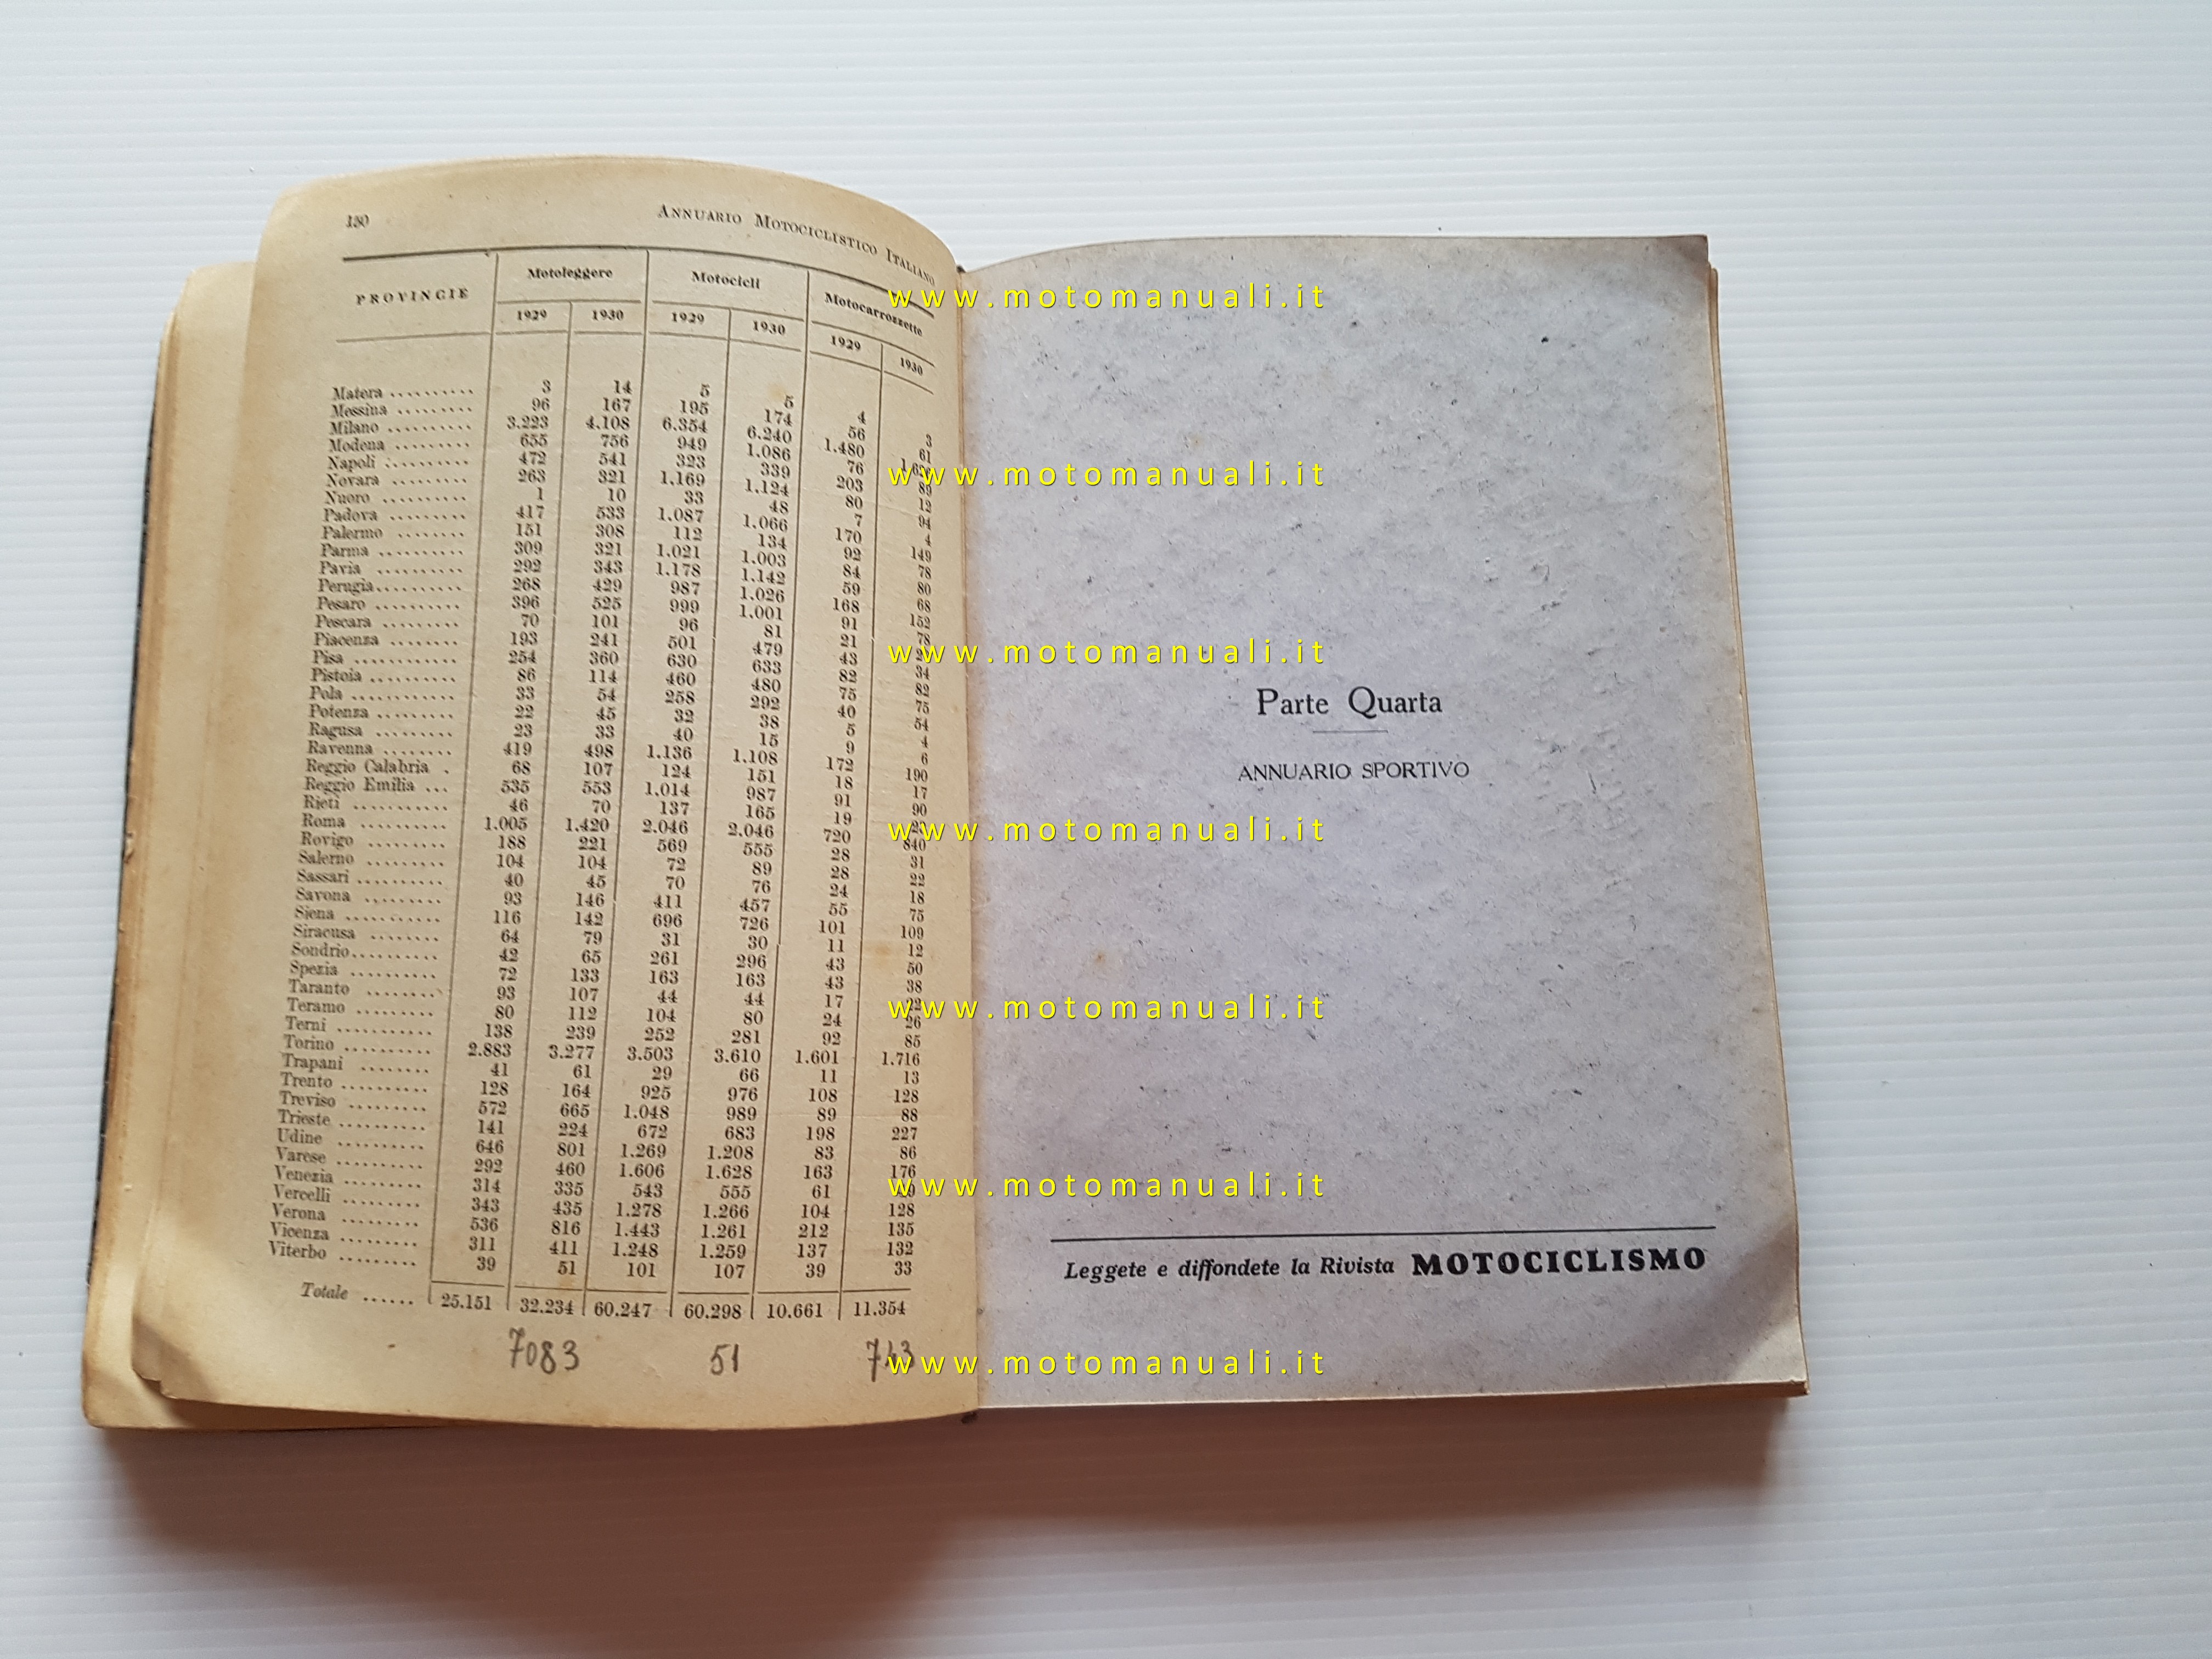 150 ANNUARIO MOTOCICLISTICO ITALIANO
PROVINCIE Motoleggere Motocicli Motocarrozzette
1929 1930 1929 1930 1929 1930
Matera .......... 3 14 5 5 4 3
Messina ......... 96 167 195 174 56 61
Milano .......... 3.223 4.108 6.354 6.240 1.480
Modena ......... 655 756 949 1.086 76 89
Napoli .......... 472 541 323 339 203 12
Novara ......... 263 321 1.169 1.124 80 94
Nuoro .......... 1 10 33 48 7 4
Padova ......... 417 533 1.087 1.066 170 149
Palermo ........ 151 308 112 134 92 78
Parma .......... 309 321 1.021 1.003 84 80
Pavia .......... 292 343 1.178 1.142 59 68
Perugia.......... 268 429 987 1.026 168 152
Pesaro .......... 396 525 999 1.001 91 78
Pescara ......... 70 101 96 81 21
Piacenza ........ 193 241 501 479 43 34
Pisa ............ 254 360 630 633 82 82
Pistoia .......... 86 114 460 480 75 75
Pola ............ 33 54 258 292 40 54
Potenza ......... 22 45 32 38 5 4
Ragusa ......... 23 33 40 15 9 6
Ravenna ........ 419 498 1.136 1.108 172 190
Reggio Calabria . 68 107 124 151 18 17
Reggio Emilia ... 535 553 1.014 987 91 90
Rieti ........... 46 70 137 165 19 23
Roma .......... 1.005 1.420 2.046 2.046 720 840
Rovigo ......... 188 221 569 555 28 31
Salerno ......... 104 104 72 89 28 22
Sassari .......... 40 45 70 76 24 18
Savona ......... 93 146 411 457 55 75
Siena ........... 116 142 696 726 101 109
Siracusa ........ 64 79 31 30 11 12
Sondrio.......... 42 65 261 296 43 50
Spezia .......... 72 133 163 163 43 38
Taranto ........ 93 107 44 44 17 22
Teramo ......... 80 112 104 80 24 26
Terni ........... 138 239 252 281 92 85
Torino .......... 2.883 3.277 3.503 3.610 1.601 1.716
Trapani ........ 41 61 29 66 11 13
Trento .......... 128 164 925 976 108 128
Treviso ......... 572 665 1.048 989 89 88
Trieste .......... 141 224 672 683 198 227
Udine .......... 646 801 1.269 1.208 83 86
Varese .......... 292 460 1.606 1.628 163 176
Venezia ......... 314 335 543 555 61
Vercelli ......... 343 435 1.278 1.266 104 128
Verona ......... 536 816 1.443 1.261 212 135
Vicenza ......... 311 411 1.248 1.259 137 132
Viterbo ......... 39 51 101 107 39 33
Totale ...... 25.151 32.234 60.247 60.298 10.661 11.354
7083 51
Parte Quarta
ANNUARIO SPORTIVO
Leggete e diffondete la Rivista MOTOCICLISMO
www.motomanuali.it
www.motomanuali.it
www.motomanuali.it
www.motomanuali.it
www.motomanuali.it
www.motomanuali.it
www.motomanuali.it